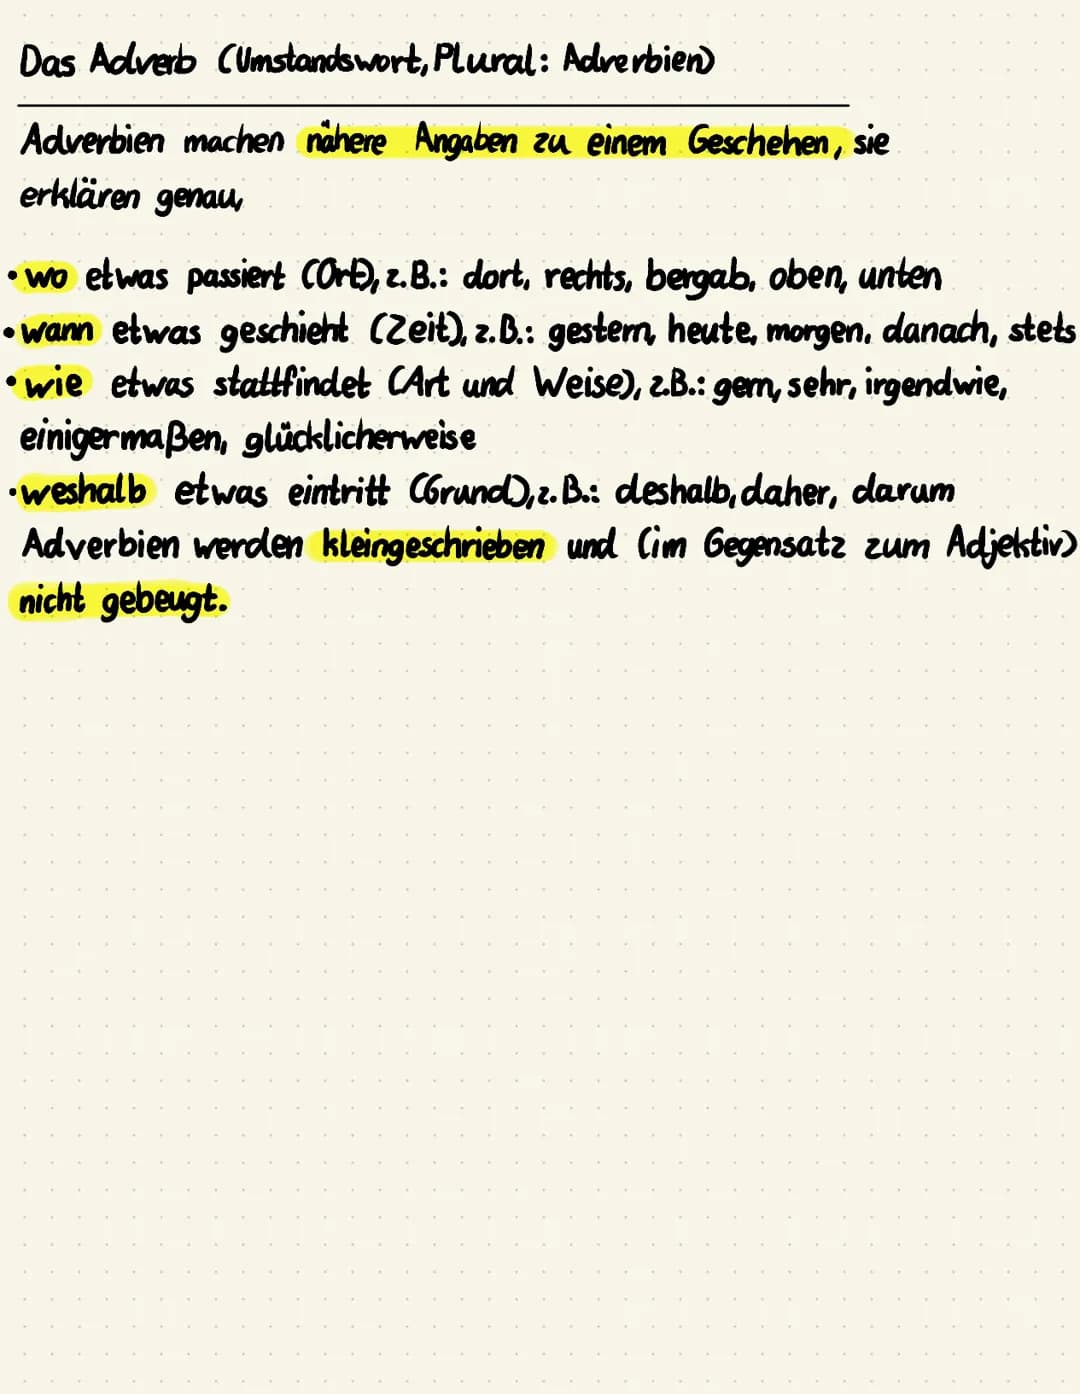 Das Adverb (Umstandswort, Plural: Adverbien)
Adverbien machen nähere Angaben zu einem Geschehen, sie
erklären genau,
• wo etwas passiert (Ort), z.B.: dort, rechts, bergab, oben, unten
• wann etwas geschieht (Zeit), z.B.: gestern, heute, morgen, danach, stets
• wie etwas stattfindet (Art und Weise), z.B.: gern, sehr, irgendwie,
einigermaßen, glücklicherweise
• weshalb etwas eintritt (Grund), z.B.: deshalb, daher, darum
Adverbien werden kleingeschrieben und (im Gegensatz zum Adjektiv)
nicht gebeugt.